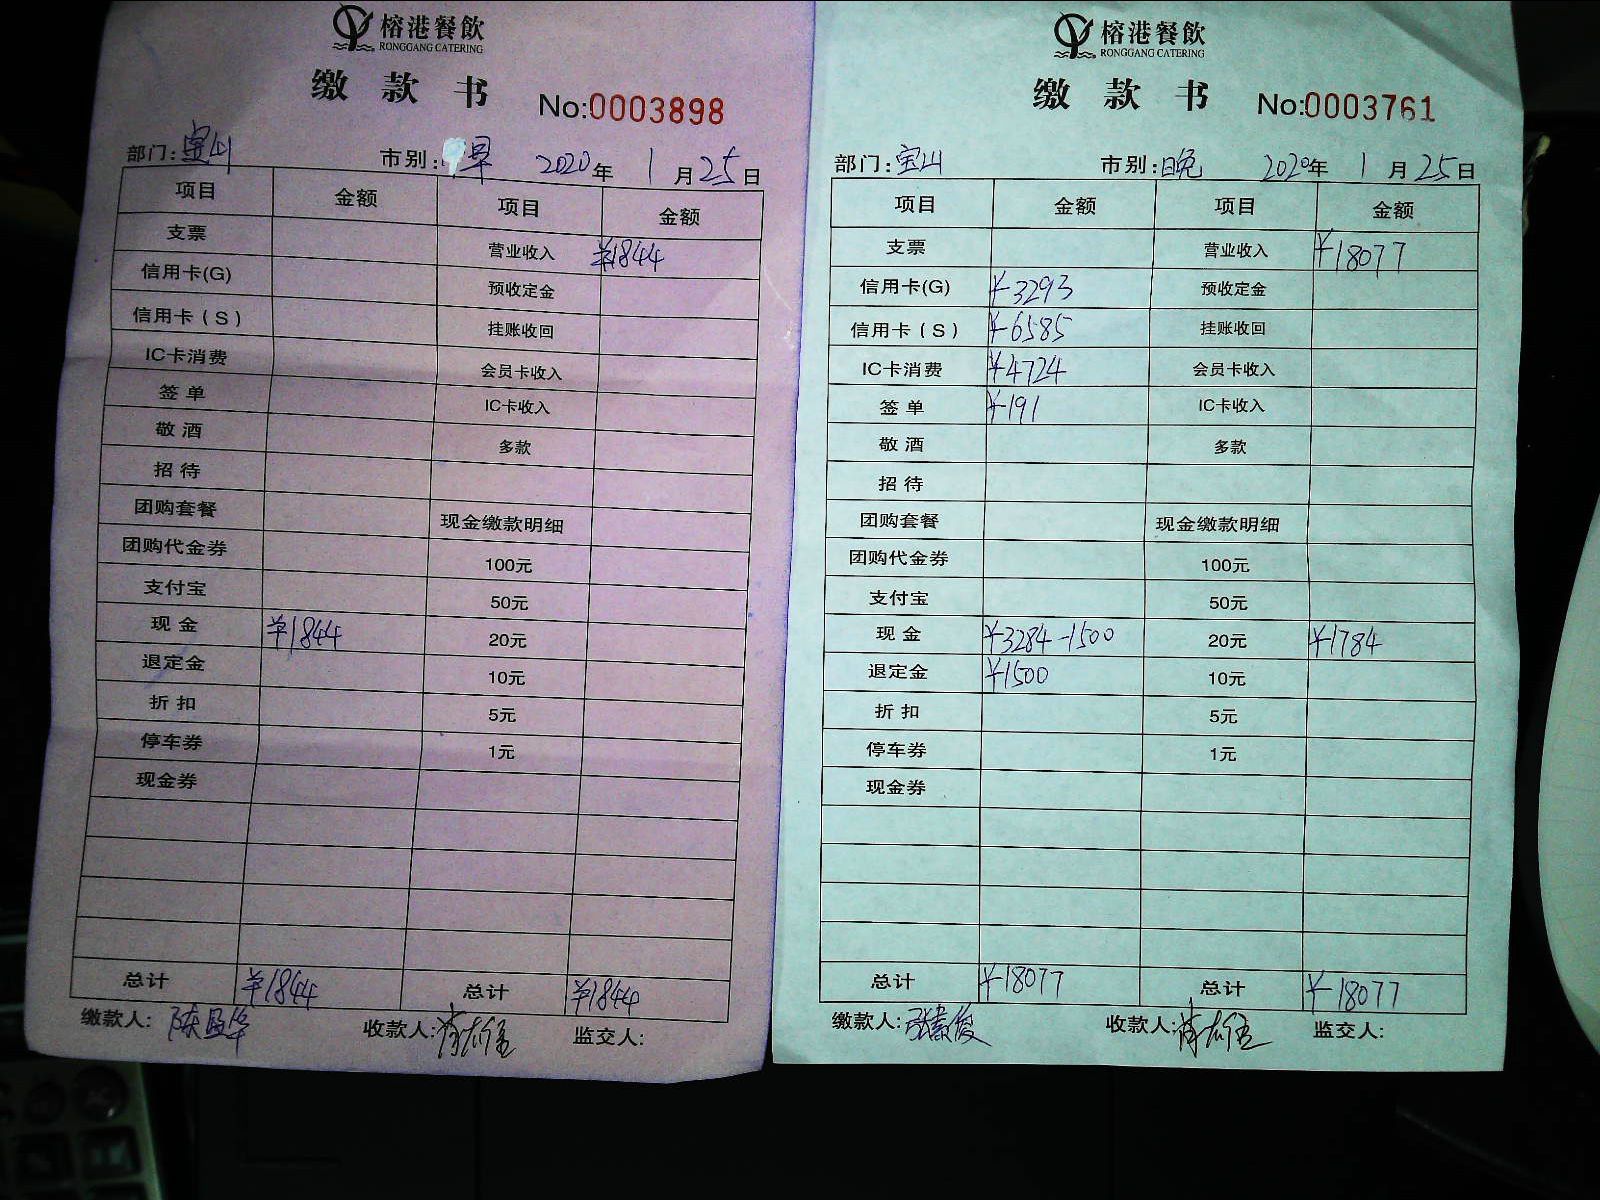 榕港餐飲
RONGGANG CATERING
缴 款 书 No:0003898
部门: 宝山 市别: 早 2020年 1月25日
项目 金额 项目 金额
支票 营业收入 ¥1844
信用卡(G) 预收定金
信用卡(S) 挂账收回
IC卡消费 会员卡收入
签单 IC卡收入
敬酒 多款
招待
团购套餐 现金缴款明细
团购代金券 100元
支付宝 50元
现金 ¥1844 20元
退定金 10元
折扣 5元
停车券 1元
现金券
总计 ¥1844 总计 ¥1844
缴款人: 收款人: 监交人:
榕港餐飲
RONGGANG CATERING
缴 款 书 No:0003761
部门: 宝山 市别: 晚 2020年 1月25日
项目 金额 项目 金额
支票 营业收入 ¥18077
信用卡(G) ¥3293 预收定金
信用卡(S) ¥6585 挂账收回
IC卡消费 ¥4724 会员卡收入
签单 ¥191 IC卡收入
敬酒 多款
招待
团购套餐 现金缴款明细
团购代金券 100元
支付宝 50元
现金 ¥3284-1500 20元 ¥1784
退定金 ¥1500 10元
折扣 5元
停车券 1元
现金券
总计 ¥18077 总计 ¥18077
缴款人: 收款人: 监交人: